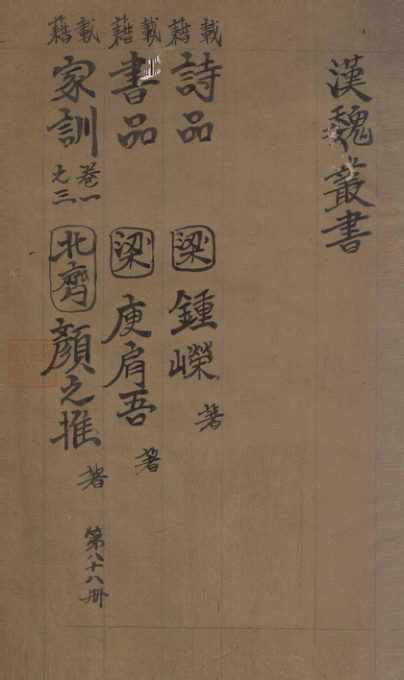 漢魏叢書
載籍 詩品 梁 鍾嶸 著
載籍 書品 梁 庾肩吾 著
載籍 家訓 卷一之三 北齊 顏之推 著
第八十八冊